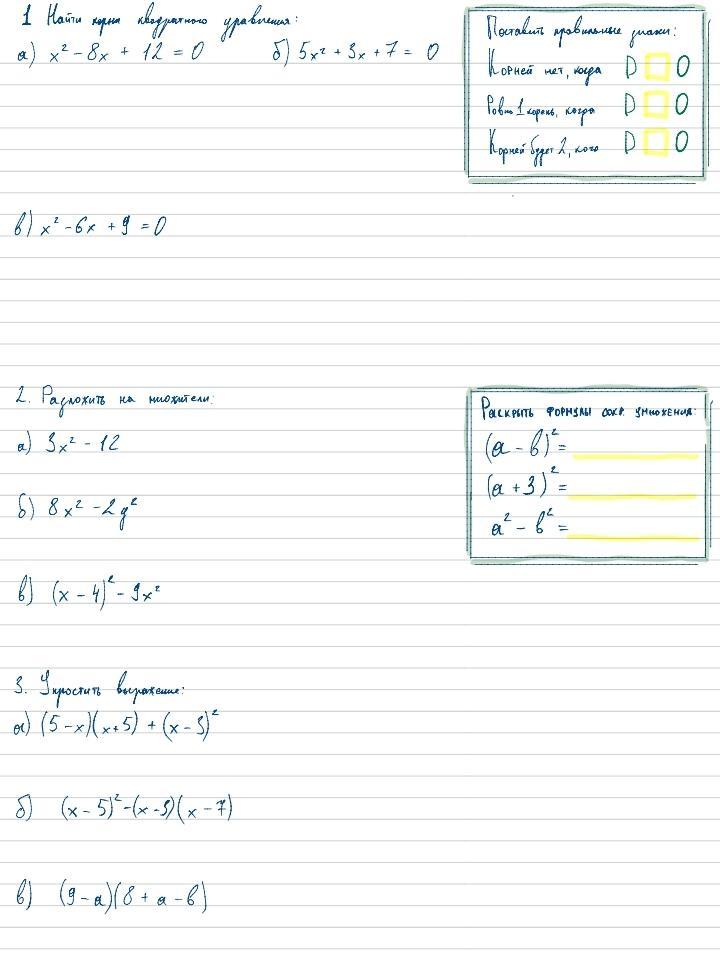 1 Найти корни квадратного уравнения:
а) x² - 8x + 12 = 0 б) 5x² + 3x + 7 = 0
Поставить правильные знаки:
Корней нет, когда D □ 0
Ровно 1 корень, когда D □ 0
Корней будет 2, кога D □ 0
в) x² - 6x + 9 = 0
2. Разложить на множители:
а) 3x² - 12
б) 8x² - 2y²
в) (x - 4)² - 9x²
Раскрыть формулы сокр. умножения:
(a - b)² =
(a + 3)² =
a² - b² =
3. Упростить выражение:
а) (5 - x)(x + 5) + (x - 3)²
б) (x - 5)² - (x - 3)(x - 7)
в) (9 - a)(8 + a - b)